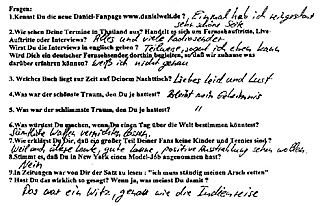 Fragen:
1.Kennst Du die neue Daniel-Fanpage www.danielwelt.de ? Einmal hab ich reingeschaut
sehr schöne Seite
2.Wie sehen Deine Termine in Thailand aus? Handelt es sich um Fernsehauftritte, Live-
Auftritte oder Interviews? Alles und viele Radiosender
Wirst Du die Interviews in englisch geben ? Teilweise, soweit ich eben kann
Wird Dich ein deutscher Fernsehsender dorthin begleiten, sodaß wir zuhause was
darüber erfahren können? Weiß ich nicht genau
3. Welches Buch liegt zur Zeit auf Deinem Nachttisch? Liebes Leid und Lust
4.Was war der schönste Traum, den Du je hattest? Bleibt mein Geheimnis
5. Was war der schlimmste Traum, den Du je hattest? "
6.Was würdest Du machen, wenn Du einen Tag über die Welt bestimmen könntest?
Sämtliche Waffen vernichten lassen.
7.Wie erklärst Du Dir, daß ein großer Teil Deiner Fans keine Kinder und Teenies sind?
Weil auch ältere Leute, gute Laune, positive Ausstrahlung sehen wollen.
8.Stimmt es, daß Du in New York einen Model-Job angenommen hast?
Nein
9.In Zeitungen war von Dir der Satz zu lesen : "ich muss ständig meinen Arsch retten"
? Hast Du das wirklich so gesagt? Wenn ja, was meinst Du damit ?
Das war ein Witz, genau wie die Indienreise